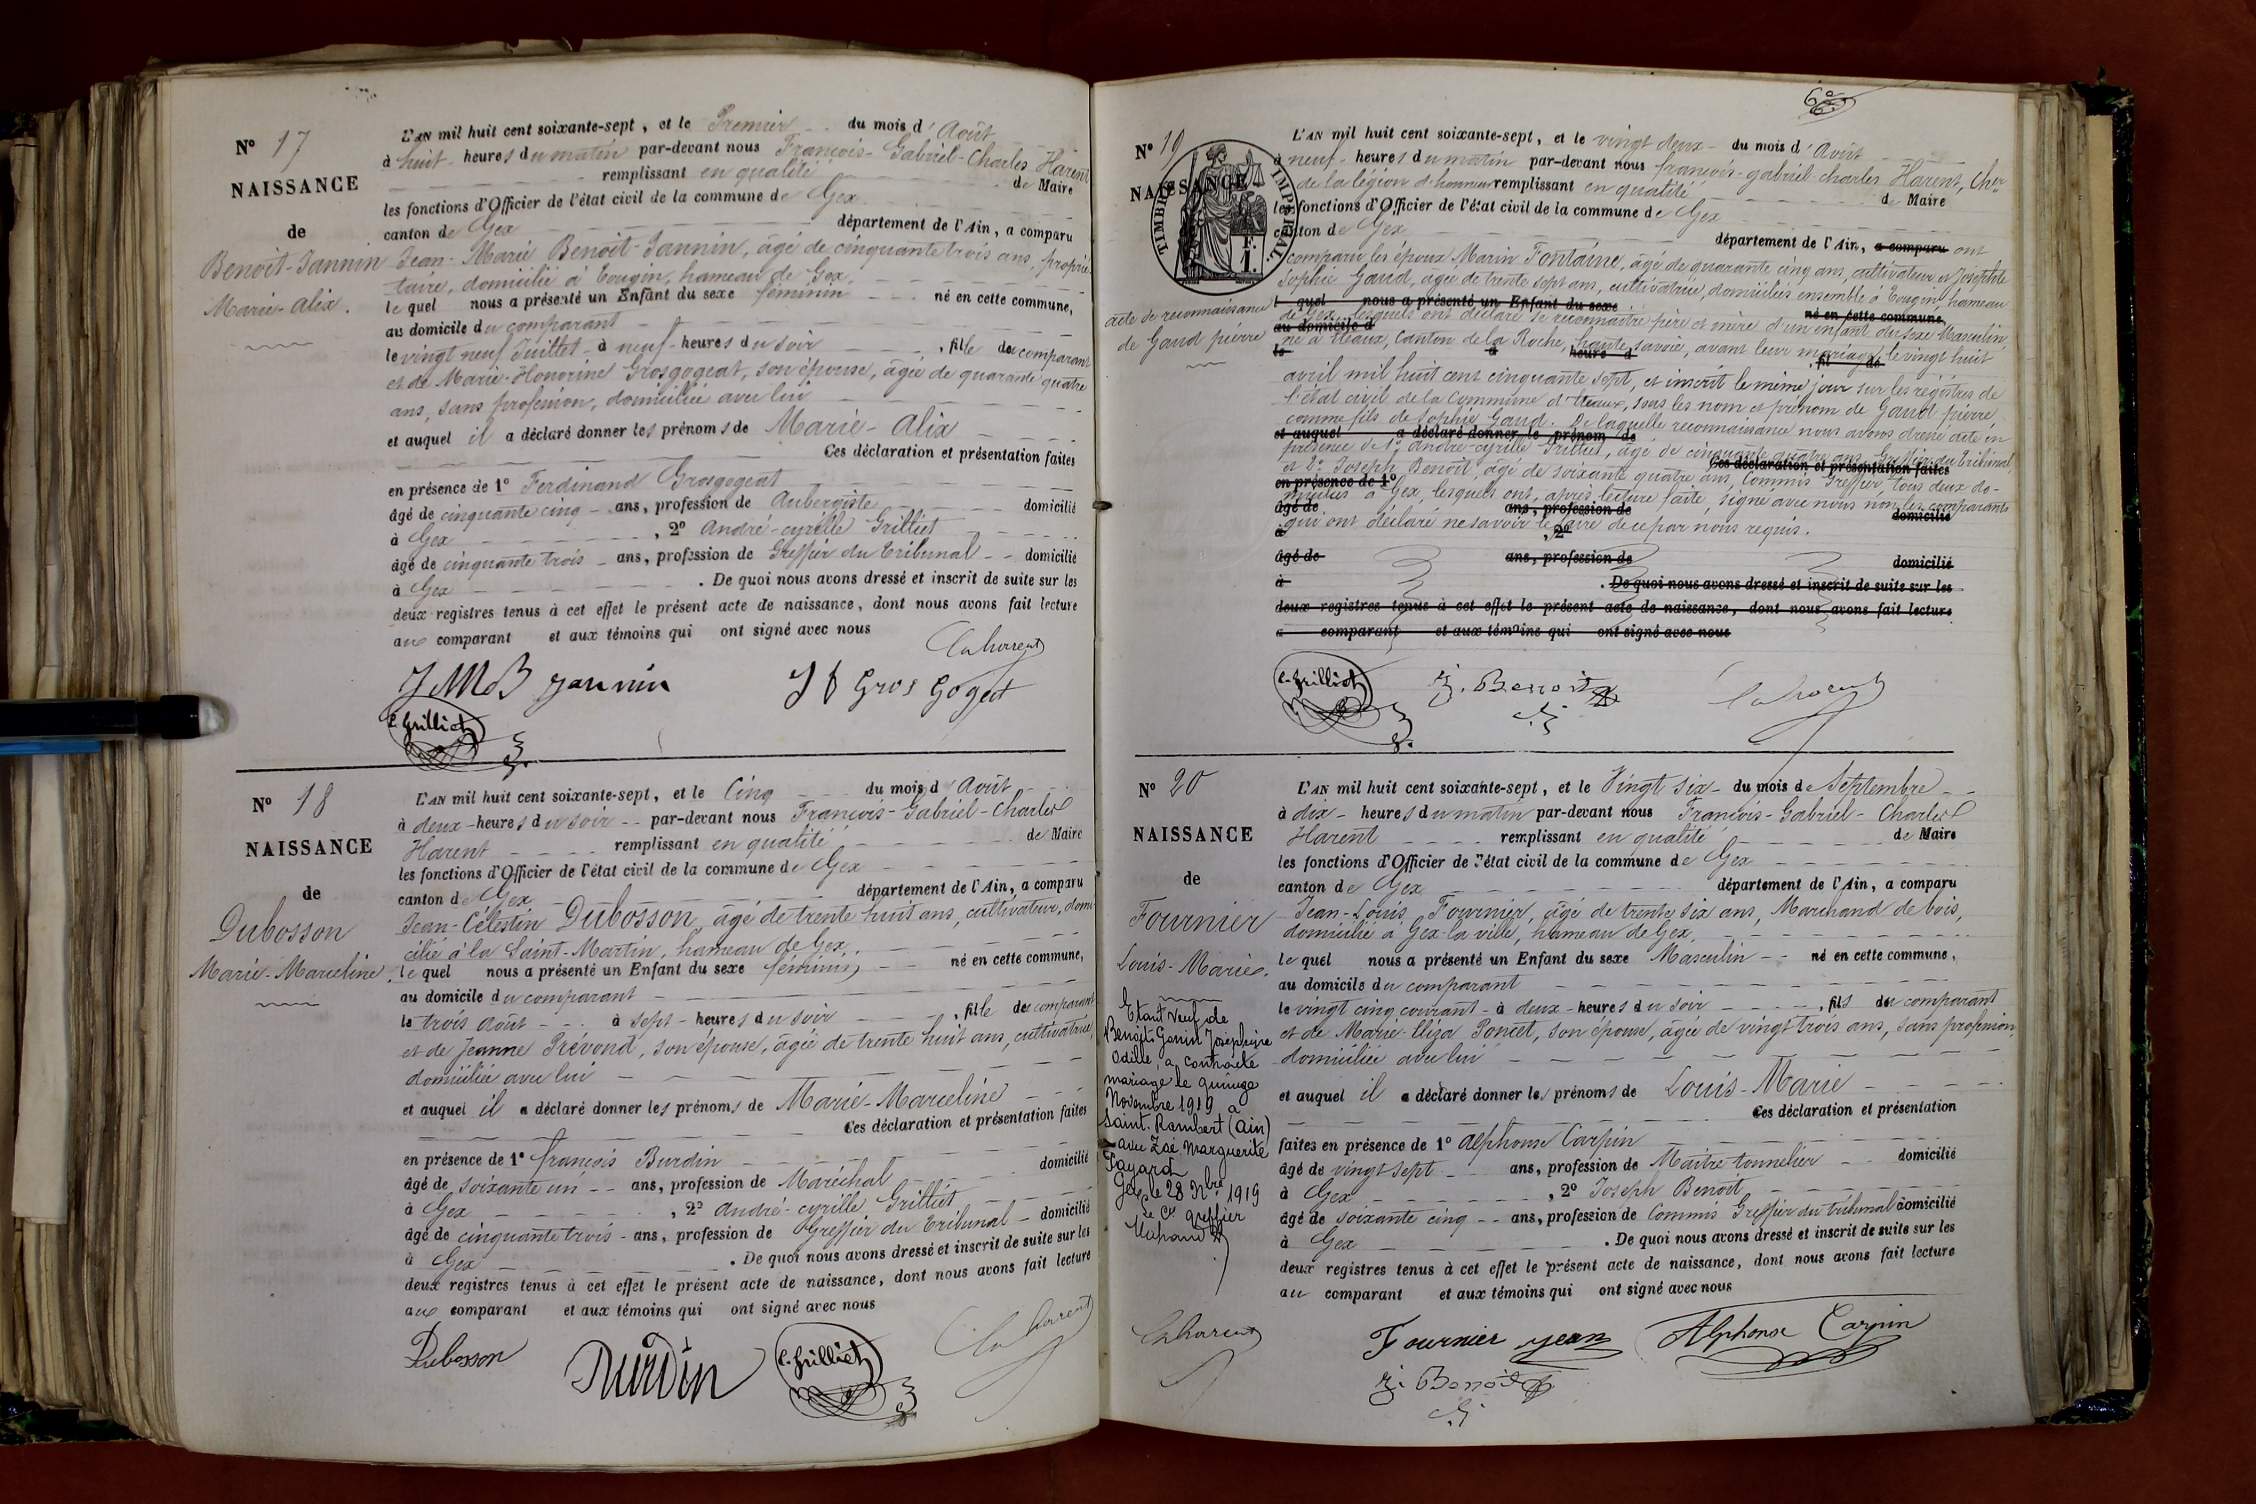 N° 17
NAISSANCE
de
Benoît-Jannin
Marie-Alix.
L'AN mil huit cent soixante-sept, et le Premier du mois d'Août
à huit heures du matin par-devant nous François-Gabriel-Charles Harent
remplissant en qualité de Maire
les fonctions d'Officier de l'état civil de la commune de Gex
canton de Gex département de l'Ain, a comparu
Jean-Marie Benoît-Jannin, âgé de cinquante trois ans, proprié-
taire, domicilié à Tougin, hameau de Gex,
le quel nous a présenté un Enfant du sexe féminin né en cette commune,
au domicile du comparant
le vingt neuf Juillet à neuf heures du soir, fille du comparant
et de Marie-Honorine Grosgogeat, son épouse, âgée de quarante quatre
ans, sans profession, domiciliée avec lui
et auquel il a déclaré donner les prénoms de Marie-Alix
Ces déclaration et présentation faites
en présence de 1° Ferdinand Grosgogeat
âgé de cinquante cinq ans, profession de Aubergiste domicilié
à Gex, 2° André-cyrille Grilliet
âgé de cinquante trois ans, profession de Greffier du Tribunal domicilié
à Gex. De quoi nous avons dressé et inscrit de suite sur les
deux registres tenus à cet effet le présent acte de naissance, dont nous avons fait lecture
au comparant et aux témoins qui ont signé avec nous
JMB Jannin
J f Gros Gogeat
C. Grilliet
N° 18
NAISSANCE
de
Dubosson
Marie-Marceline.
L'AN mil huit cent soixante-sept, et le Cinq du mois d'Août
à deux heures du soir par-devant nous François-Gabriel-Charles
Harent remplissant en qualité de Maire
les fonctions d'Officier de l'état civil de la commune de Gex
canton de Gex département de l'Ain, a comparu
Jean-Célestin Dubosson, âgé de trente huit ans, cultivateur, domi-
cilié à la Saint-Martin, hameau de Gex,
le quel nous a présenté un Enfant du sexe féminin né en cette commune,
au domicile du comparant
le trois Août à sept heures du soir, fille du comparant
et de Jeanne Prévond, son épouse, âgée de trente huit ans, cultivatrice,
domiciliée avec lui
et auquel il a déclaré donner les prénoms de Marie-Marceline
Ces déclaration et présentation faites
en présence de 1° françois Burdin
âgé de soixante un ans, profession de Maréchal domicilié
à Gex, 2° André-cyrille Grilliet
âgé de cinquante trois ans, profession de Greffier du Tribunal domicilié
à Gex. De quoi nous avons dressé et inscrit de suite sur les
deux registres tenus à cet effet le présent acte de naissance, dont nous avons fait lecture
au comparant et aux témoins qui ont signé avec nous
Dubosson
Burdin
C. Grilliet
N° 19
NAISSANCE
TIMBRE IMPERIAL
1 F.
acte de reconnaissance
de Gaud pierre
L'AN mil huit cent soixante-sept, et le vingt deux du mois d'Août
à neuf heures du matin par-devant nous françois-gabriel-charles Harent, Cher
de la légion d'honneur remplissant en qualité de Maire
les fonctions d'Officier de l'état civil de la commune de Gex
canton de Gex département de l'Ain, a comparu ont
comparu les époux Marin Fontaine, âgé de quarante cinq ans, cultivateur et Josephte
Sophie Gaud, âgée de trente sept ans, cultivatrice, domiciliés ensemble à Tougin, hameau
l quel nous a présenté un Enfant du sexe né en cette commune,
de Gex, lesquels ont déclaré se reconnaître père et mère d'un enfant du sexe Masculin,
au domicile d
né à Eteaux, Canton de la Roche, haute savoie, avant leur mariage, le vingt huit
le à heure d , fil de
avril mil huit cent cinquante sept, et inscrit le même jour sur les registres de
l'état civil de la Commune d'Eteaux, sous les nom et prénom de Gaud pierre,
comme fils de Sophie Gaud. De laquelle reconnaissance nous avons dressé acte en
et auquel a déclaré donner le prénom de
présence de 1° André-cyrille Grilliet, âgé de cinquante quatre ans, Greffier du Tribunal,
Ces déclaration et présentation faites
et 2° Joseph Benoît, âgé de soixante quatre ans, Commis Greffier, tous deux do-
en présence de 1°
miciliés à Gex, lesquels ont, après lecture faite, signé avec nous non les comparants
âgé de ans, profession de domicilié
qui ont déclaré ne savoir le faire de ce par nous requis.
à , 2°
âgé de ans, profession de domicilié
à . De quoi nous avons dressé et inscrit de suite sur les
deux registres tenus à cet effet le présent acte de naissance, dont nous avons fait lecture
a comparant et aux témoins qui ont signé avec nous
C. Grilliet
J. Benoit
N° 20
NAISSANCE
de
Fournier
Louis-Marie.
Etant veuf de
Benoît-Janin Joséphine
Odille, a contracté
mariage le quinze
Novembre 1919 à
Saint-Rambert (Ain)
avec Zoé Marguerite
Fayard
Gex le 28 Nbre 1919
Le Cs greffier
L'AN mil huit cent soixante-sept, et le Vingt six du mois de Septembre
à dix heures du matin par-devant nous François-Gabriel-Charles
Harent remplissant en qualité de Maire
les fonctions d'Officier de l'état civil de la commune de Gex
canton de Gex département de l'Ain, a comparu
Jean-Louis Fournier, âgé de trente six ans, Marchand de bois,
domicilié à Gex-la-ville, hameau de Gex,
le quel nous a présenté un Enfant du sexe Masculin né en cette commune,
au domicile du comparant
le vingt cinq courant à deux heures du soir, fils du comparant
et de Marie-Eliza Poncet, son épouse, âgée de vingt trois ans, sans profession,
domiciliée avec lui
et auquel il a déclaré donner les prénoms de Louis-Marie
Ces déclaration et présentation
faites en présence de 1° Alphonse Carpin
âgé de vingt sept ans, profession de Maître tonnelier domicilié
à Gex, 2° Joseph Benoît
âgé de soixante cinq ans, profession de Commis Greffier du tribunal domicilié
à Gex. De quoi nous avons dressé et inscrit de suite sur les
deux registres tenus à cet effet le présent acte de naissance, dont nous avons fait lecture
au comparant et aux témoins qui ont signé avec nous
Fournier jean
Alphonse Carpin
J. Benoit